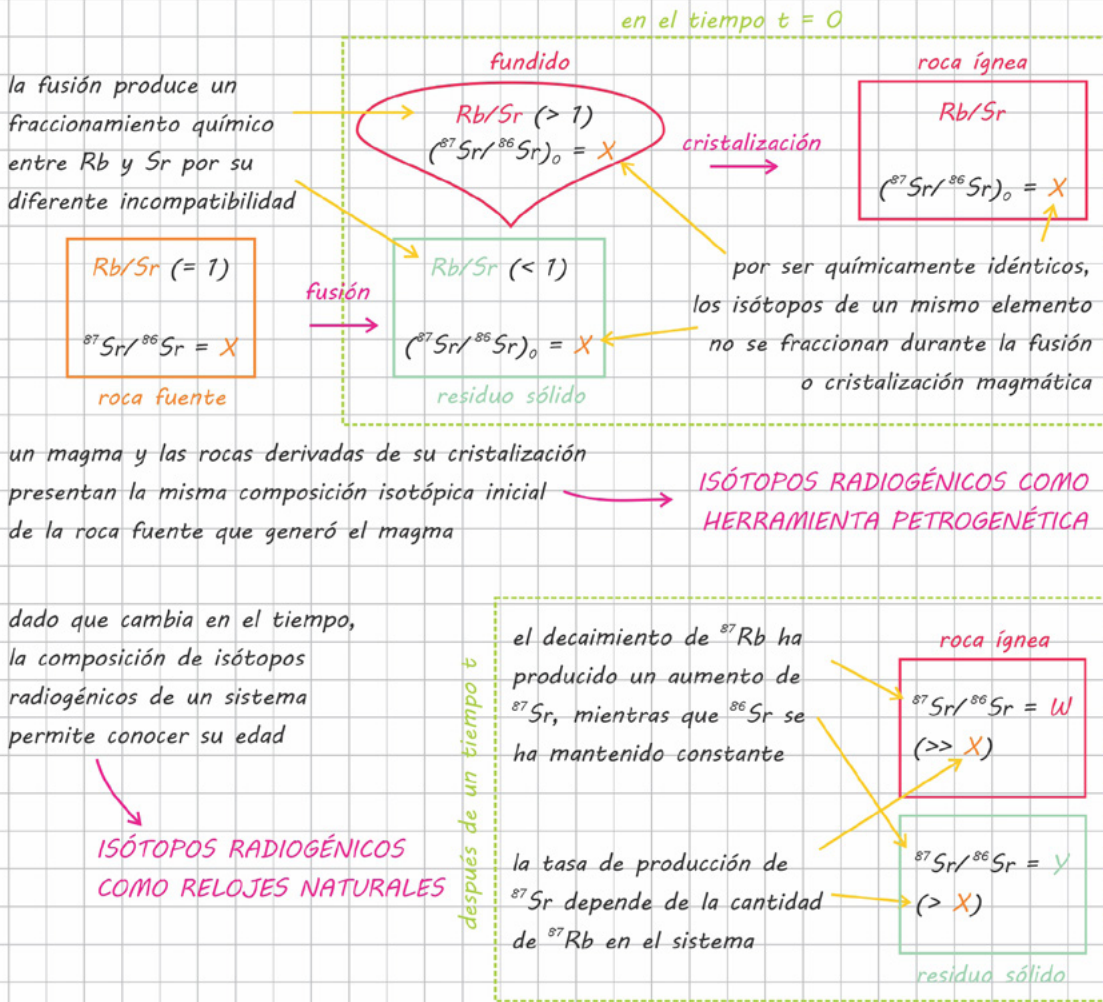 en el tiempo t = 0
la fusión produce un
fraccionamiento químico
entre Rb y Sr por su
diferente incompatibilidad
fundido
Rb/Sr (> 1)
(⁸⁷Sr/⁸⁶Sr)₀ = X
cristalización
roca ígnea
Rb/Sr
(⁸⁷Sr/⁸⁶Sr)₀ = X
Rb/Sr (= 1)
⁸⁷Sr/⁸⁶Sr = X
roca fuente
fusión
Rb/Sr (< 1)
(⁸⁷Sr/⁸⁶Sr)₀ = X
residuo sólido
por ser químicamente idénticos,
los isótopos de un mismo elemento
no se fraccionan durante la fusión
o cristalización magmática
un magma y las rocas derivadas de su cristalización
presentan la misma composición isotópica inicial
de la roca fuente que generó el magma
ISÓTOPOS RADIOGÉNICOS COMO
HERRAMIENTA PETROGENÉTICA
dado que cambia en el tiempo,
la composición de isótopos
radiogénicos de un sistema
permite conocer su edad
ISÓTOPOS RADIOGÉNICOS
COMO RELOJES NATURALES
después de un tiempo t
el decaimiento de ⁸⁷Rb ha
producido un aumento de
⁸⁷Sr, mientras que ⁸⁶Sr se
ha mantenido constante
la tasa de producción de
⁸⁷Sr depende de la cantidad
de ⁸⁷Rb en el sistema
roca ígnea
⁸⁷Sr/⁸⁶Sr = W
(>> X)
⁸⁷Sr/⁸⁶Sr = Y
(> X)
residuo sólido